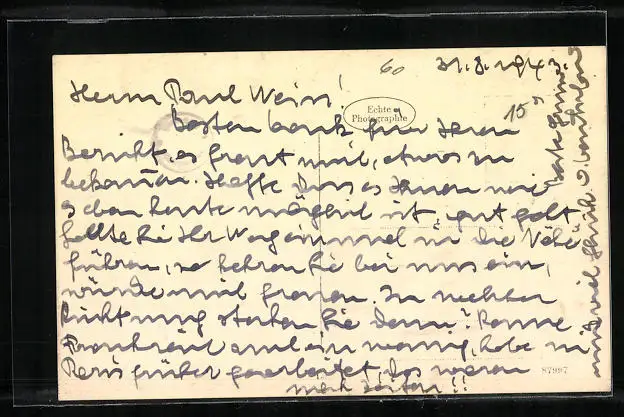 60
31.8.1943.
Herrn Paul Wein!
Echte
Photographie
15
Besten Dank für Ihren
Bericht, es freut mich, etwas zu
bekommen. Hoffe dass es Ihnen wie
schon heute möglich ist, gut geht
Sollte Sie Ihr Weg einmal in die Nähe
führen, so kehren Sie bei uns ein,
würde mich freuen. In welcher
Richtung starten Sie dann? Kenne
Frankreich auch ein wenig, habe in
Paris früher gearbeitet, das waren
noch Zeiten!!
beste Grüsse
und viel Glück
87997